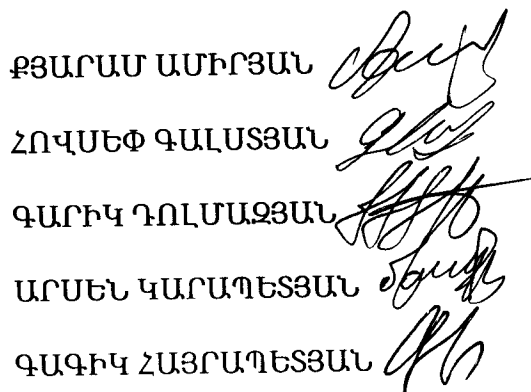 ՔՅԱՐԱՄ ԱՄԻՐՅԱՆ
ՀՈՎՍԵՓ ԳԱԼՍՏՅԱՆ
ԳԱՐԻԿ ԴՈԼՄԱԶՅԱՆ
ԱՐՍԵՆ ԿԱՐԱՊԵՏՅԱՆ
ԳԱԳԻԿ ՀԱՅՐԱՊԵՏՅԱՆ